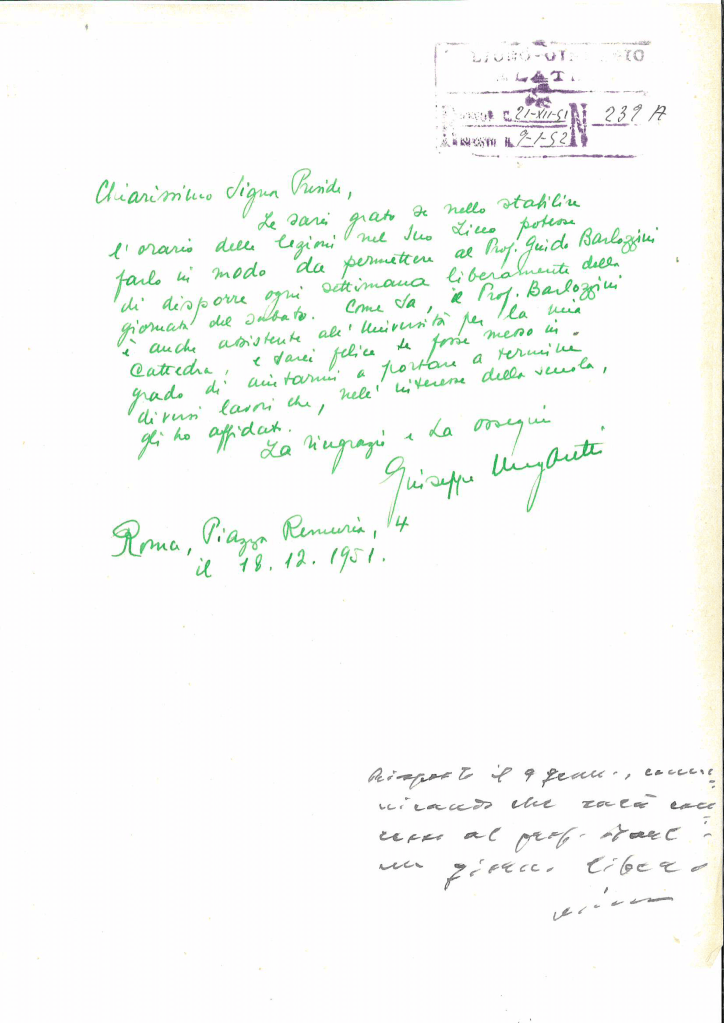 LICEO-GI
ALAT
21-XII-51 N 239 A
9-1-52
Chiarissimo Signor Preside,
Le sarei grato se nello stabilire
l'orario delle lezioni nel Suo Liceo potesse
farlo in modo da permettere al Prof. Guido Barlozzini
di disporre ogni settimana liberamente della
giornata del sabato. Come Sa, il Prof. Barlozzini
è anche assistente all'Università per la mia
Cattedra, e sarei felice se fosse messo in
grado di aiutarmi a portare a termine
diversi lavori che, nell'interesse della scuola,
gli ho affidato.
La ringrazio e La ossequio
Giuseppe Ungaretti
Roma, Piazza Remuria, 4
il 18.12.1951.
Risposto il 9 genn., comu-
nicando che sarà con
cesso al prof. Barl
un giorno libero